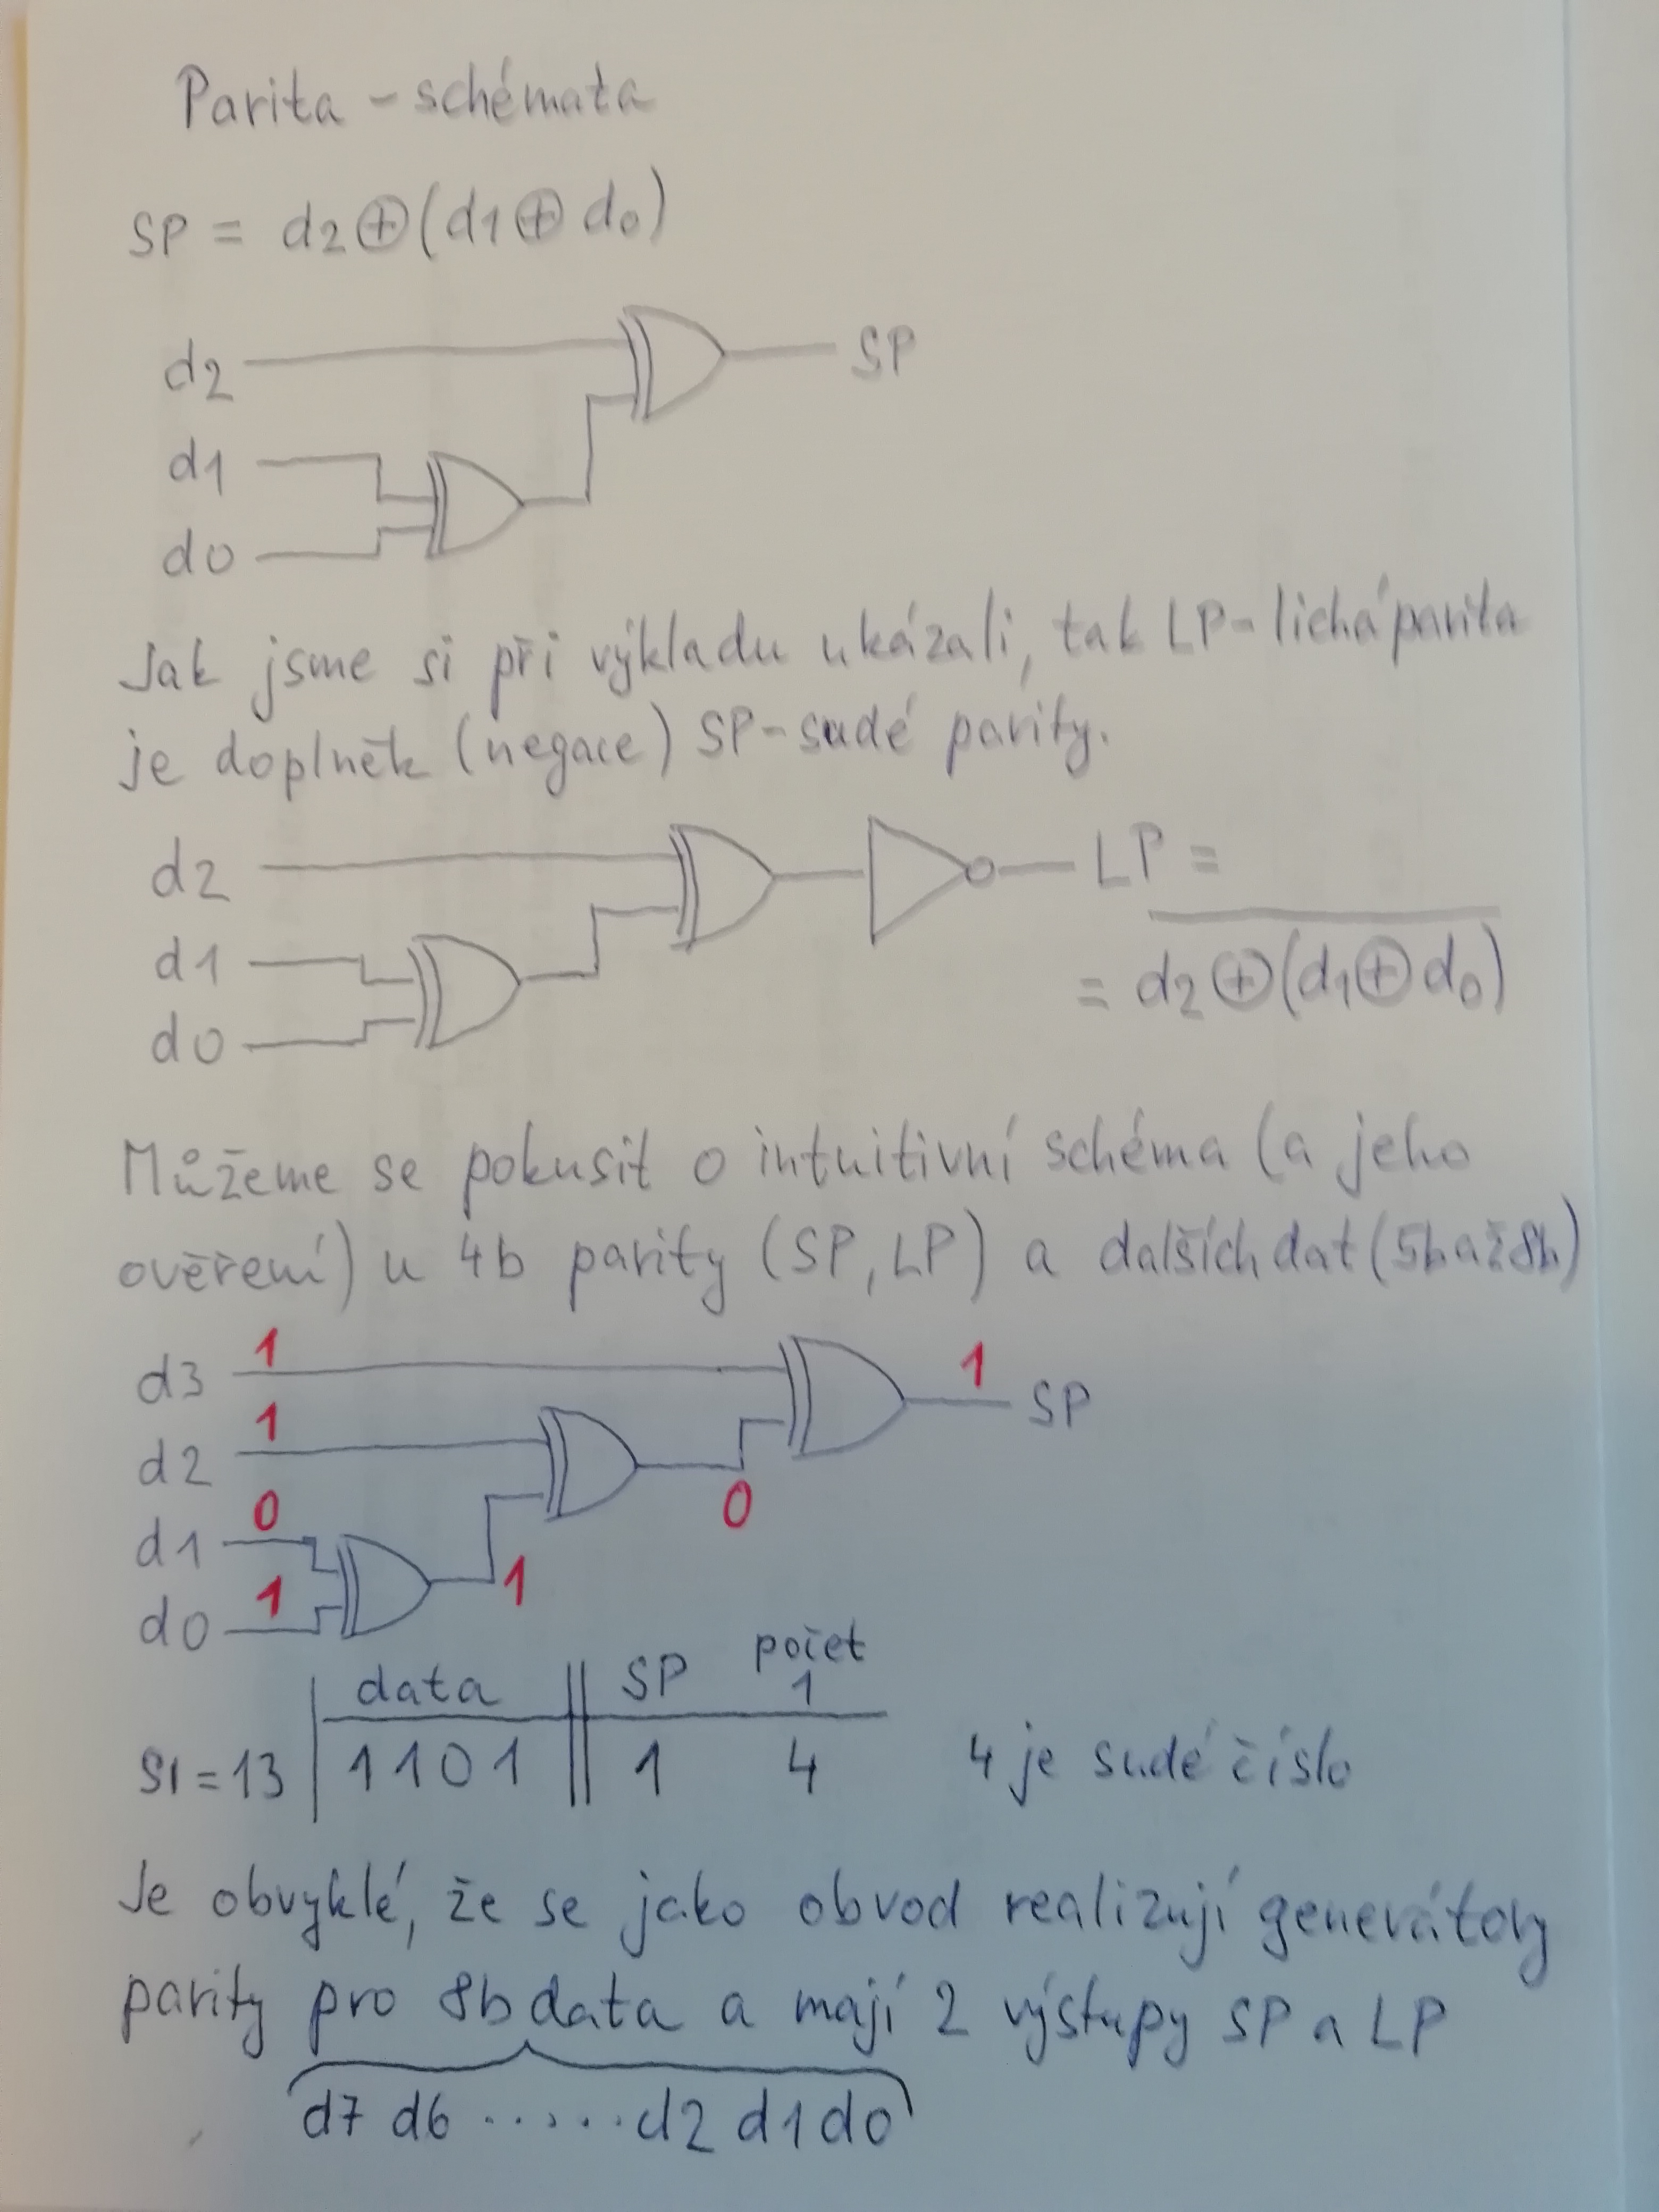 Parita - schémata
SP = d2⊕(d1⊕d0)
d2
SP
d1
d0
Jak jsme si při výkladu ukázali, tak LP-lichá parita
je doplněk (negace) SP-sudé parity.
d2
LP =
d1
= d2⊕(d1⊕d0)
d0
Můžeme se pokusit o intuitivní schéma (a jeho
ověření) u 4b parity (SP, LP) a dalších dat (5b až 8b)
d3 1
1 SP
d2 1
0
d1 0
1
d0 1
data SP počet 1
SI = 13 1101 1 4 4 je sudé číslo
Je obvyklé, že se jako obvod realizují generátory
parity pro 8b data a mají 2 výstupy SP a LP
d7 d6 ...... d2 d1 d0